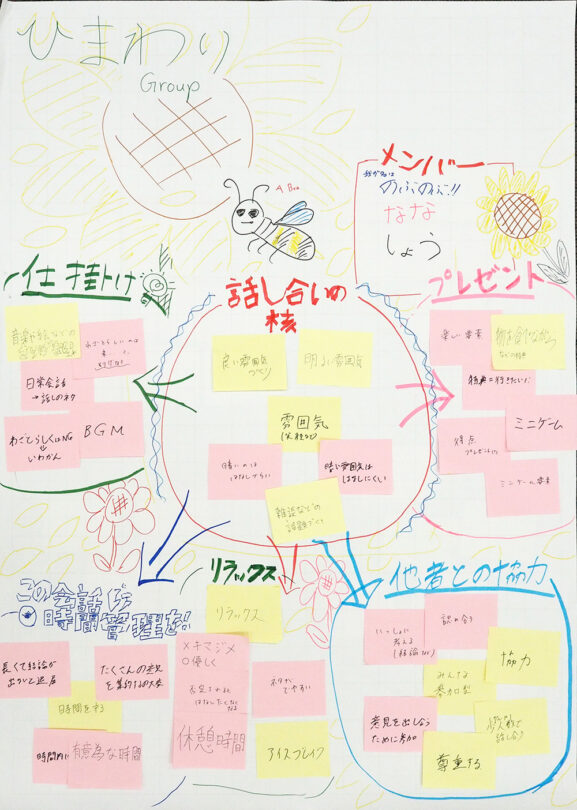 ひまわり
Group
A Bee
メンバー
のぶのぶ!!
なな
しょう
仕掛け
日常会話
→話しのネタ
わざとらしくはNG
いわかん
BGM
話し合いの
核
良い雰囲気
づくり
明るい雰囲気
雰囲気
暗いのは
はなしづらい
暗い雰囲気は
はなしにくい
雑談などの
話題づくり
プレゼント
楽しい要素
特典=行きたいに
得点
プレゼント
ミニゲーム
ミニゲーム要素
この会話に
時間管理を
長くて結論が
たくさんの意見
時間を守る
時間内に
有意義な時間
リラックス
リラックス
×キマジメ
○優しく
休憩時間
アイスブレイク
他者との協力
いっしょに
考える
認め合う
協力
みんな
参加型
意見を出しあう
ために参加
話し合う
尊重する